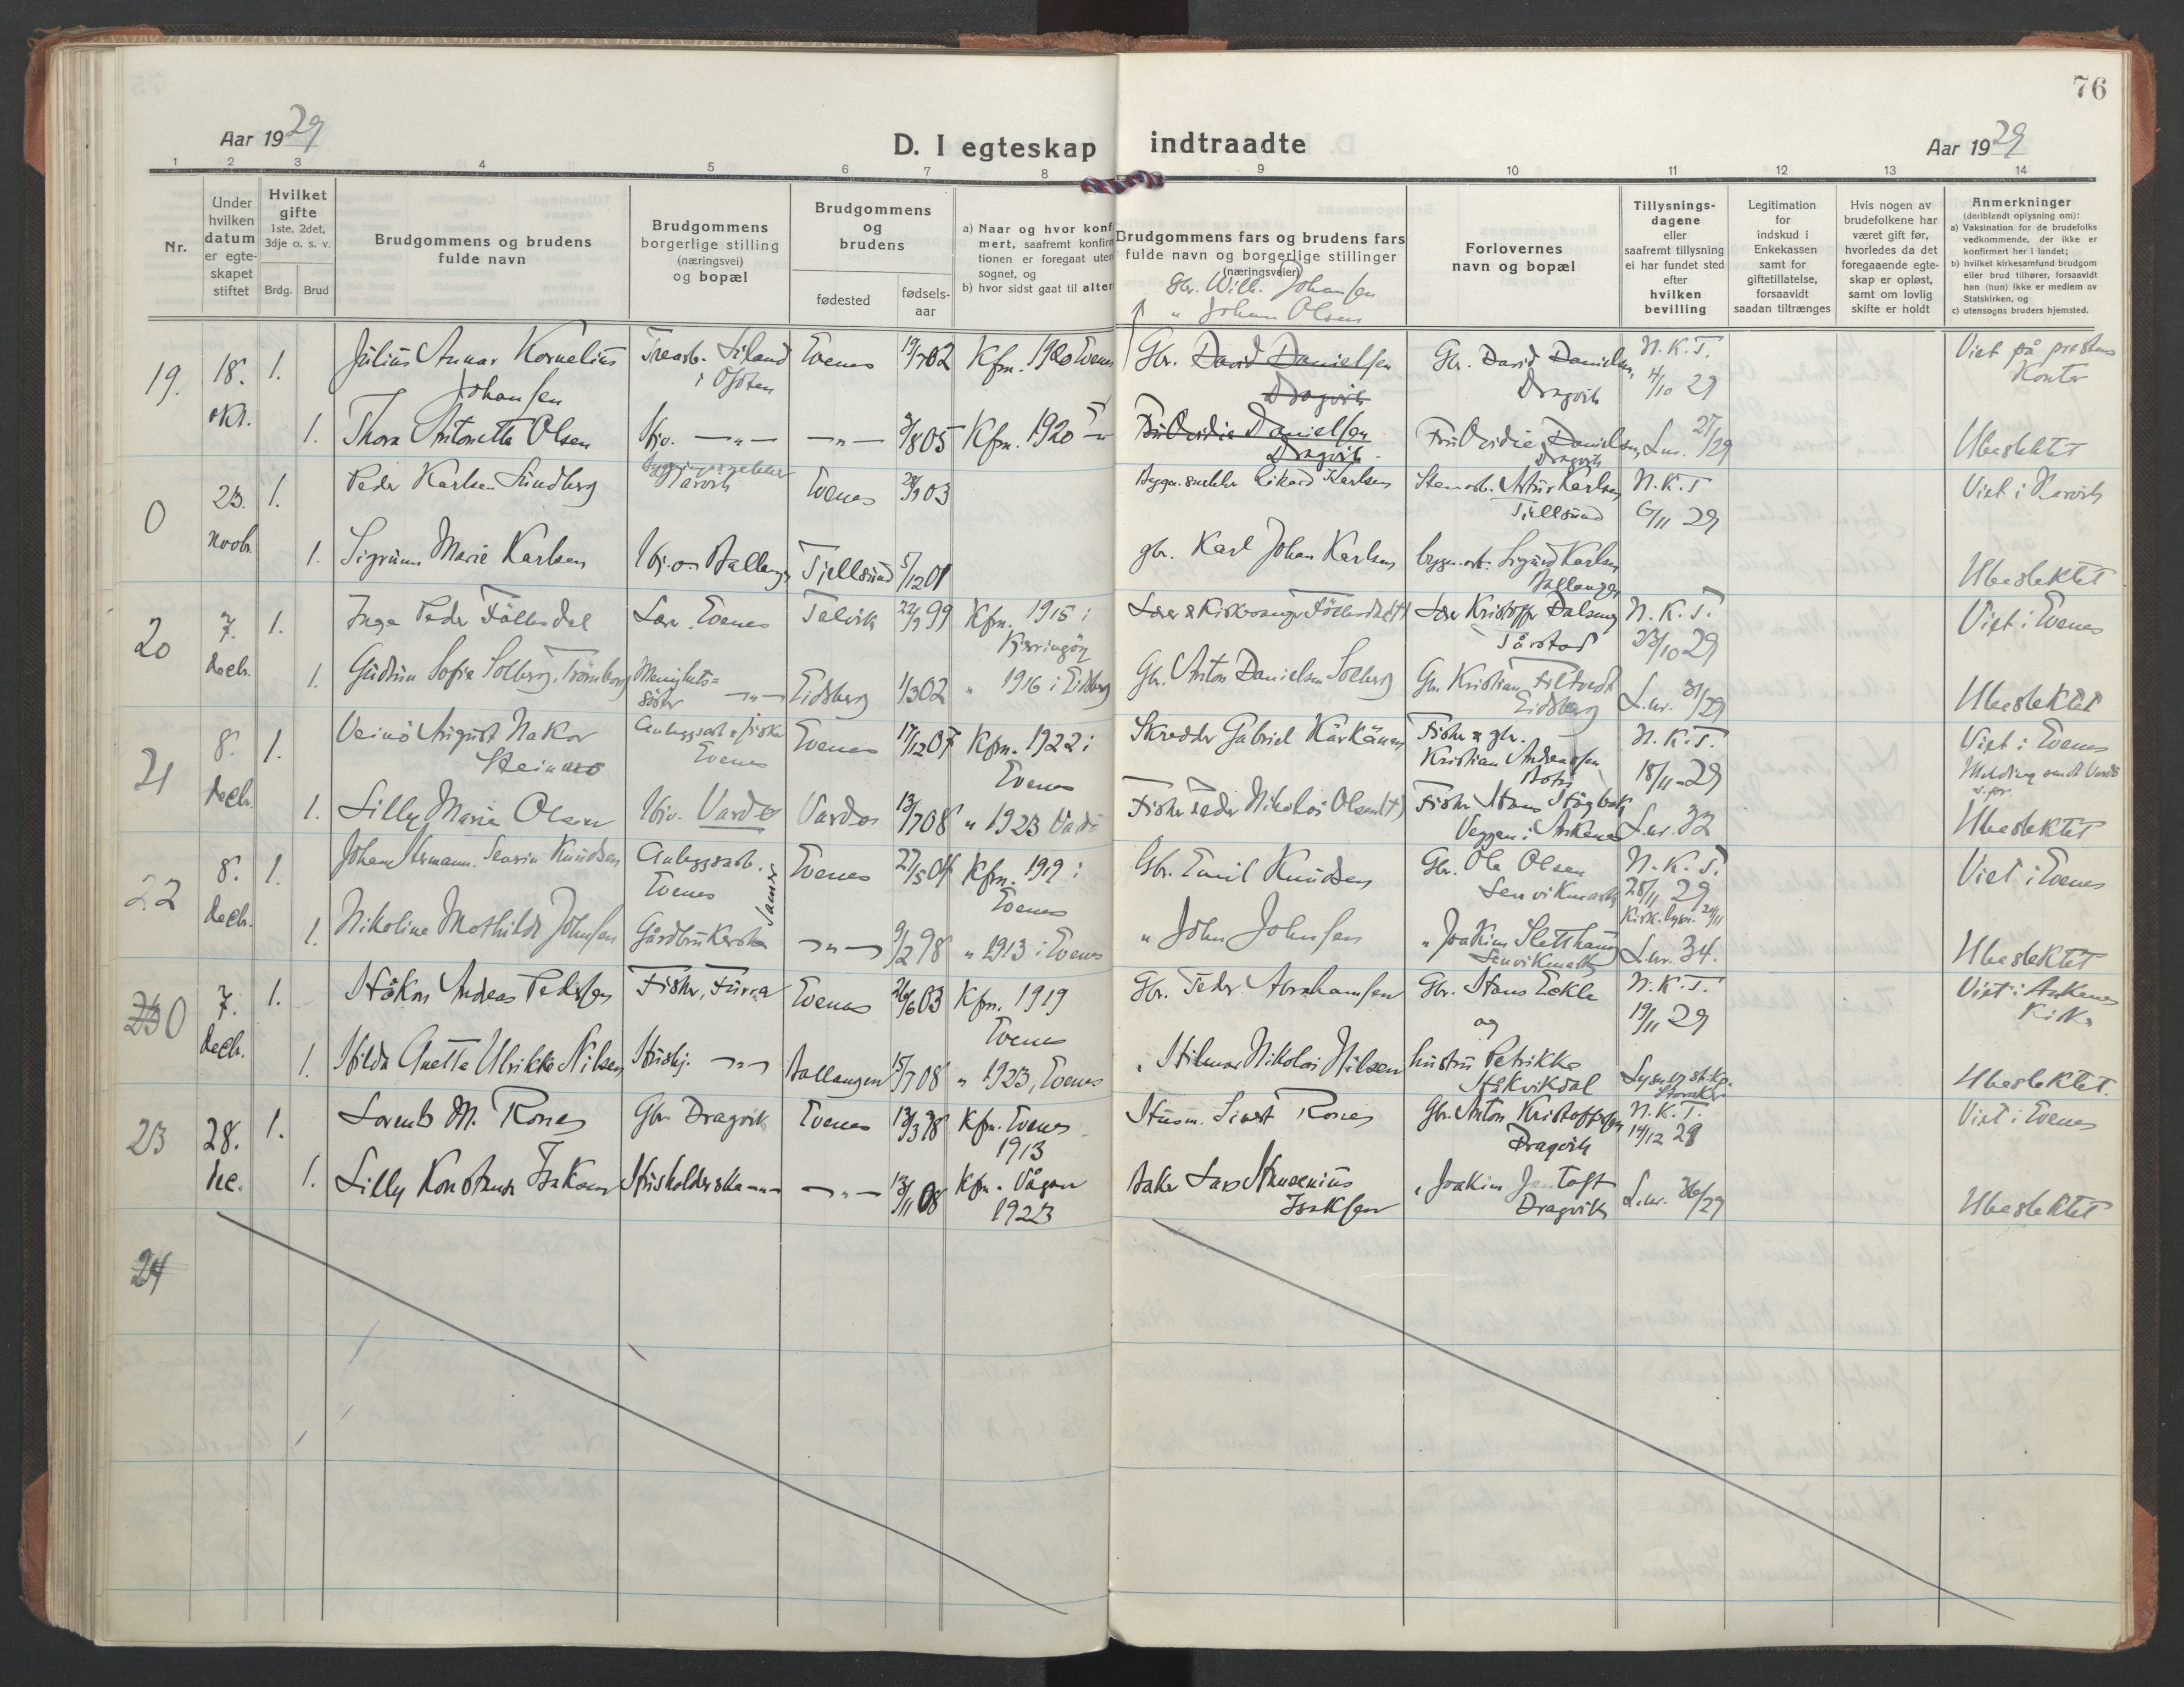 76
Aar 1929
D. I egteskap indtraadte
Aar 1929
1 2 3 4 5 6 7 8 9 10 11 12 13 14
Nr.
Under hvilken datum er egteskapet stiftet
Hvilket gifte 1ste, 2det, 3dje o. s. v.
Brdg. Brud
Brudgommens og brudens fulde navn
Brudgommens borgerlige stilling (næringsvei) og bopæl
Brudgommens og brudens
fødested
fødsels-aar
a) Naar og hvor konf
mert, saafremt konfirm
tionen er foregaat uten
sognet, og
b) hvor sidst gaat til alter
Brudgommens fars og brudens fars
fulde navn og borgerlige stillinger
(næringsveier)
Forlovernes navn og bopæl
Tillysnings-
dagene
eller
saafremt tillysning
ei har fundet sted
efter
hvilken
bevilling
Legitimation
for
indskud i
Enkekassen
samt for
giftetillatelse,
forsaavidt
saadan tiltrænges
Hvis nogen av
brudefolkene har
været gift før,
hvorledes da det
foregaaende egte-
skap er opløst,
samt om lovlig
skifte er holdt
Anmerkninger
(deriblandt oplysning om):
a) Vaksination for de brudefolks
vedkommende, der ikke er
konfirmert her i landet;
b) hvilket kirkesamfund brudgom
eller brud tilhører, forsaavidt
han (hun) ikke er medlem av
Statskirken, og
c) utensogns bruders hjemsted.
Gbr. Wilh. Johansen
" Johan Olsen
19. 18. okt. 1. Julius Annar Kornelius Johansen Trearb. Liland i Ofoten Evenes 19/7 02 Kfm. 1920 Evenes Gbr. David Danielsen Dragvik Gbr. David Danielsen, Dragvik N.K.T. 4/10 29 Viet på prestens Kontor
1. Thora Antonette Olsen Hj. —"— —"— 3/8 05 Kfm. 1920 —"— Fru Ovidie Danielsen Dragvik Fru Ovidie Danielsen, Dragvik L.nr. 27/29 Ubeslektet
0 23. novbr. 1. Peder Karlsen Lindberg Bygningssnekker Narvik Evenes 28/9 03 Bygn. snekker Rikard Karlsen Stenarb. Artur Karlsen Tjellsund N.K.T 6/11 29 Viet i Narvik
1. Sigrunn Marie Karlsen Hj. Ballangen Tjellsund 5/12 01 gbr. Karl Johan Karlsen bygn.arb. Sigurd Karlsen Ballangen Ubeslektet
20 7. decbr. 1. Inge PederFöllesdal Lærer, Evenes Talvik 22/9 99 Kfm. 1915 i Kjerringöy Lærer & Kirkesanger Föllesdal (†) Lærer Kristoffer Dalseng Tårstad N.K.T. 23/10 29 Viet i Evenes
1. Gudrun Sofie Solberg, Trömborg Menighets=söster —"— Eidsberg 1/3 02 " 1916 i Eidsberg Gbr. Anton Danielsen Solberg Gbr. Kristian Filtvedt Eidsberg L.nr. 31/29 Ubeslektet
21 8. decbr. 1. Veinö August Nakor Steinarö Anleggsarb. & fisker Evenes Evenes 17/12 07 Kfm. 1922 i Evenes Skredder Gabriel Kärkäinen Fisker & gbr. Kristian Andreassen Botn N.K.T. 18/11-29 Viet i Evenes Melding sendt Vardö s.pr.
1. Lilly Marie Olsen Hj. Vardö Vardö 13/7 08 " 1923 Vardö Fisker Peder Nikolai Olsen (†) Fisker Hans Haugbakk Veggen i Ankenes L.nr. 32 Ubeslektet
22 8. decbr. 1. Johan Hermann Senarin Knudsen Anleggsarb. Evenes Samer Evenes 27/5 04 Kfm. 1919 i Evenes Gbr. Emil Knudsen Gbr. Ole Olsen Lenvikmark N.K.T. 28/11 29 Kirk. lysn. 24/11 Viet i Evenes
1. Nikoline Mathilde Johnsen Gårdbrukerske —"— 9/2 98 " 1913 i Evenes " John Johnsen " Joakim Sletthaug Lenvikmark L.nr. 34. Ubeslektet
0 7. decbr. 1. Håkon Andreas Pedersen Fisker, Forra Evenes 26/6 03 Kfm. 1919 Evenes Gbr. Peder Abrahamsen Gbr. Hans Eckle og N.K.T. 19/11 29 Viet i Ankenes Kirke
1. Hilda Anette Ulrikke Nilsen Hushj. —"— Ballangen 15/7 08 " 1923, Evenes " Hilmar Nikolai Nilsen hustru Petrikke Håkvikdal Ubeslektet.
23 28. de. 1. Lorents M. Rones Gbr. Dragvik Evenes 13/3 98 Kfm. Evenes 1913 Husm. Sivert Rones Gbr. Anton Kristoffersen Dragvik N.K.T. 14/12 29 Viet i Evenes
1. Lilly Konstanse Isaksen Husholderske —"— —"— 13/11 08 Kfm. Vågan 1923 Baker Lars Isaksen " Joakim Jentoft Dragvik L.nr. 36/29 Ubeslektet
24